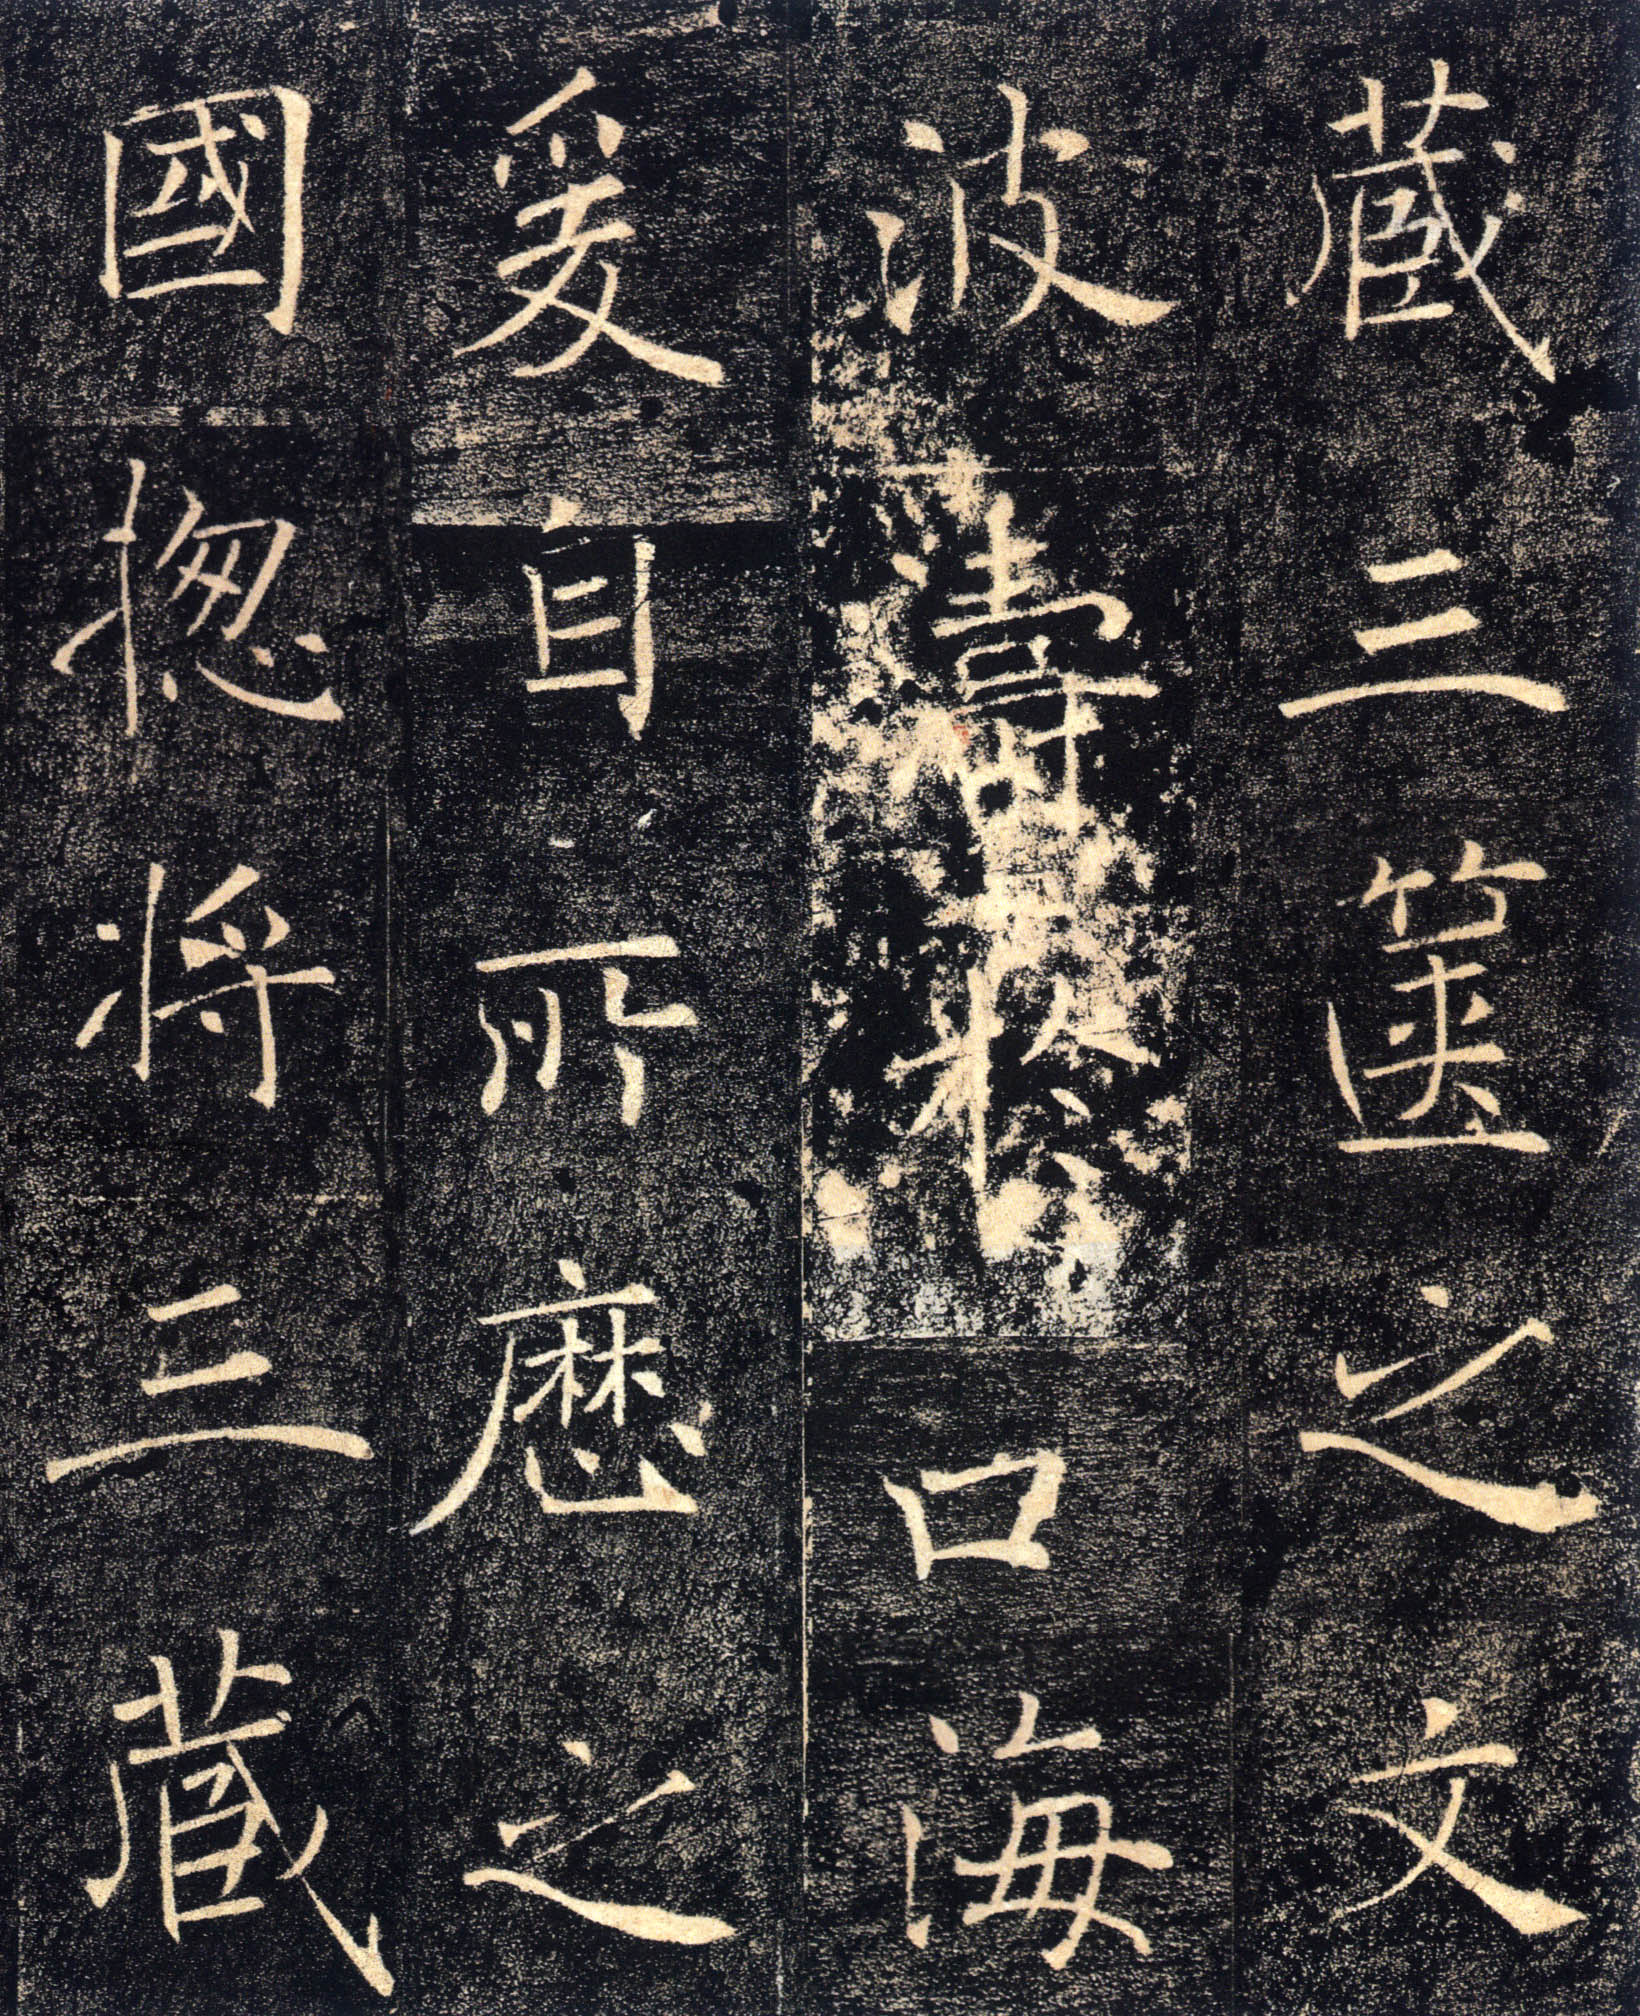 藏三篋之文
波濤於口海
爰自所歷之
國揔將三藏